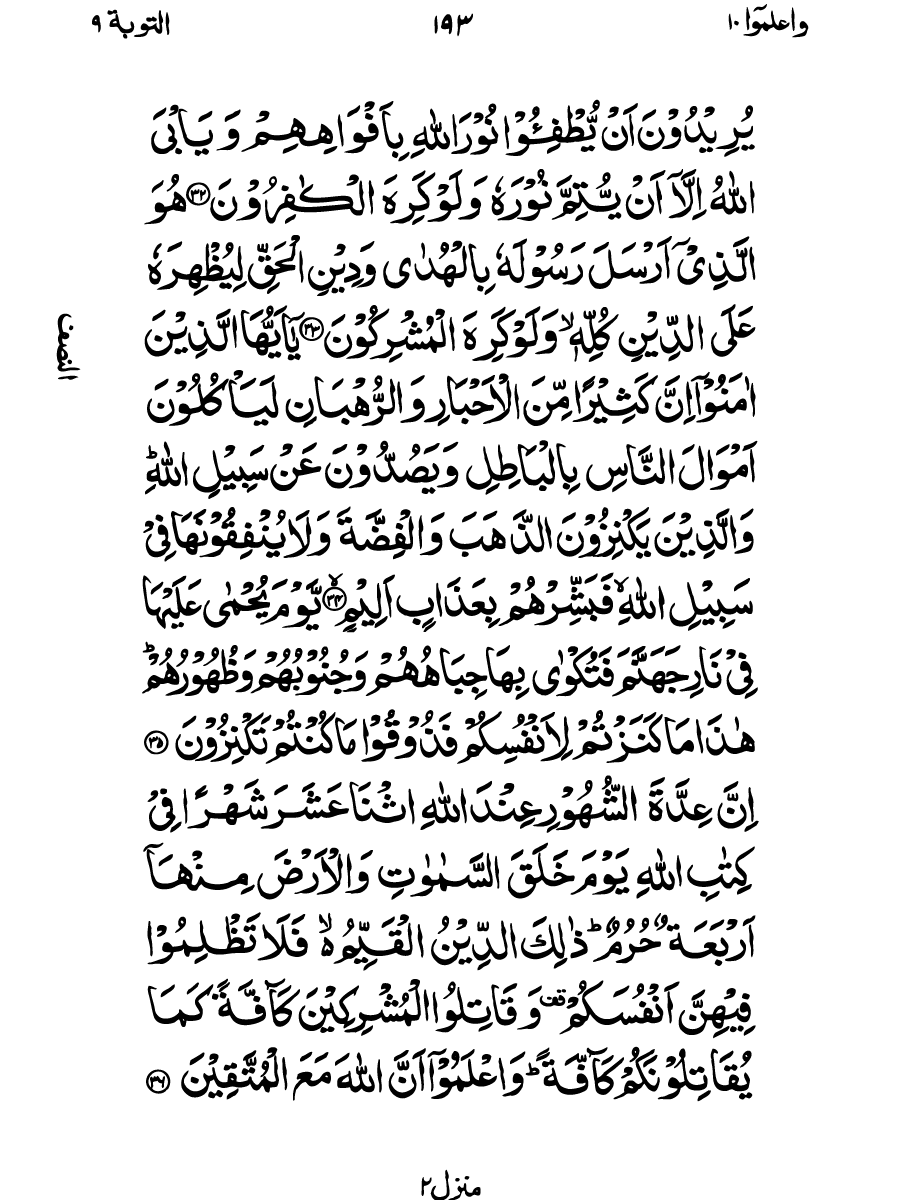 واعلموا ١٠ ١٩٣ التوبة ٩
يُرِيْدُوْنَ اَنْ يُّطْفِـُٔوْا نُوْرَ اللّٰهِ بِاَفْوَاهِهِمْ وَ يَاْبَى
اللّٰهُ اِلَّاۤ اَنْ يُّتِمَّ نُوْرَهٗ وَ لَوْ كَرِهَ الْكٰفِرُوْنَ ۝۳۲ هُوَ
الَّذِيْۤ اَرْسَلَ رَسُوْلَهٗ بِالْهُدٰى وَ دِيْنِ الْحَقِّ لِيُظْهِرَهٗ
عَلَى الدِّيْنِ كُلِّهٖ ۙ وَ لَوْ كَرِهَ الْمُشْرِكُوْنَ ۝۳۳ يٰۤاَيُّهَا الَّذِيْنَ
النصف
اٰمَنُوْۤا اِنَّ كَثِيْرًا مِّنَ الْاَحْبَارِ وَ الرُّهْبَانِ لَيَاْكُلُوْنَ
اَمْوَالَ النَّاسِ بِالْبَاطِلِ وَ يَصُدُّوْنَ عَنْ سَبِيْلِ اللّٰهِ ؕ
وَ الَّذِيْنَ يَكْنِزُوْنَ الذَّهَبَ وَ الْفِضَّةَ وَ لَا يُنْفِقُوْنَهَا فِيْ
سَبِيْلِ اللّٰهِ ۙ فَبَشِّرْهُمْ بِعَذَابٍ اَلِيْمٍ ۝۳۴ ۙ يَّوْمَ يُحْمٰى عَلَيْهَا
فِيْ نَارِ جَهَنَّمَ فَتُكْوٰى بِهَا جِبَاهُهُمْ وَ جُنُوْبُهُمْ وَ ظُهُوْرُهُمْ ؕ
هٰذَا مَا كَنَزْتُمْ لِاَنْفُسِكُمْ فَذُوْقُوْا مَا كُنْتُمْ تَكْنِزُوْنَ ۝۳۵
اِنَّ عِدَّةَ الشُّهُوْرِ عِنْدَ اللّٰهِ اثْنَا عَشَرَ شَهْرًا فِيْ
كِتٰبِ اللّٰهِ يَوْمَ خَلَقَ السَّمٰوٰتِ وَ الْاَرْضَ مِنْهَاۤ
اَرْبَعَةٌ حُرُمٌ ؕ ذٰلِكَ الدِّيْنُ الْقَيِّمُ ۙ۬ فَلَا تَظْلِمُوْا
فِيْهِنَّ اَنْفُسَكُمْ قف وَ قَاتِلُوا الْمُشْرِكِيْنَ كَآفَّةً كَمَا
يُقَاتِلُوْنَكُمْ كَآفَّةً ؕ وَ اعْلَمُوْۤا اَنَّ اللّٰهَ مَعَ الْمُتَّقِيْنَ ۝۳۶
منزل ٢